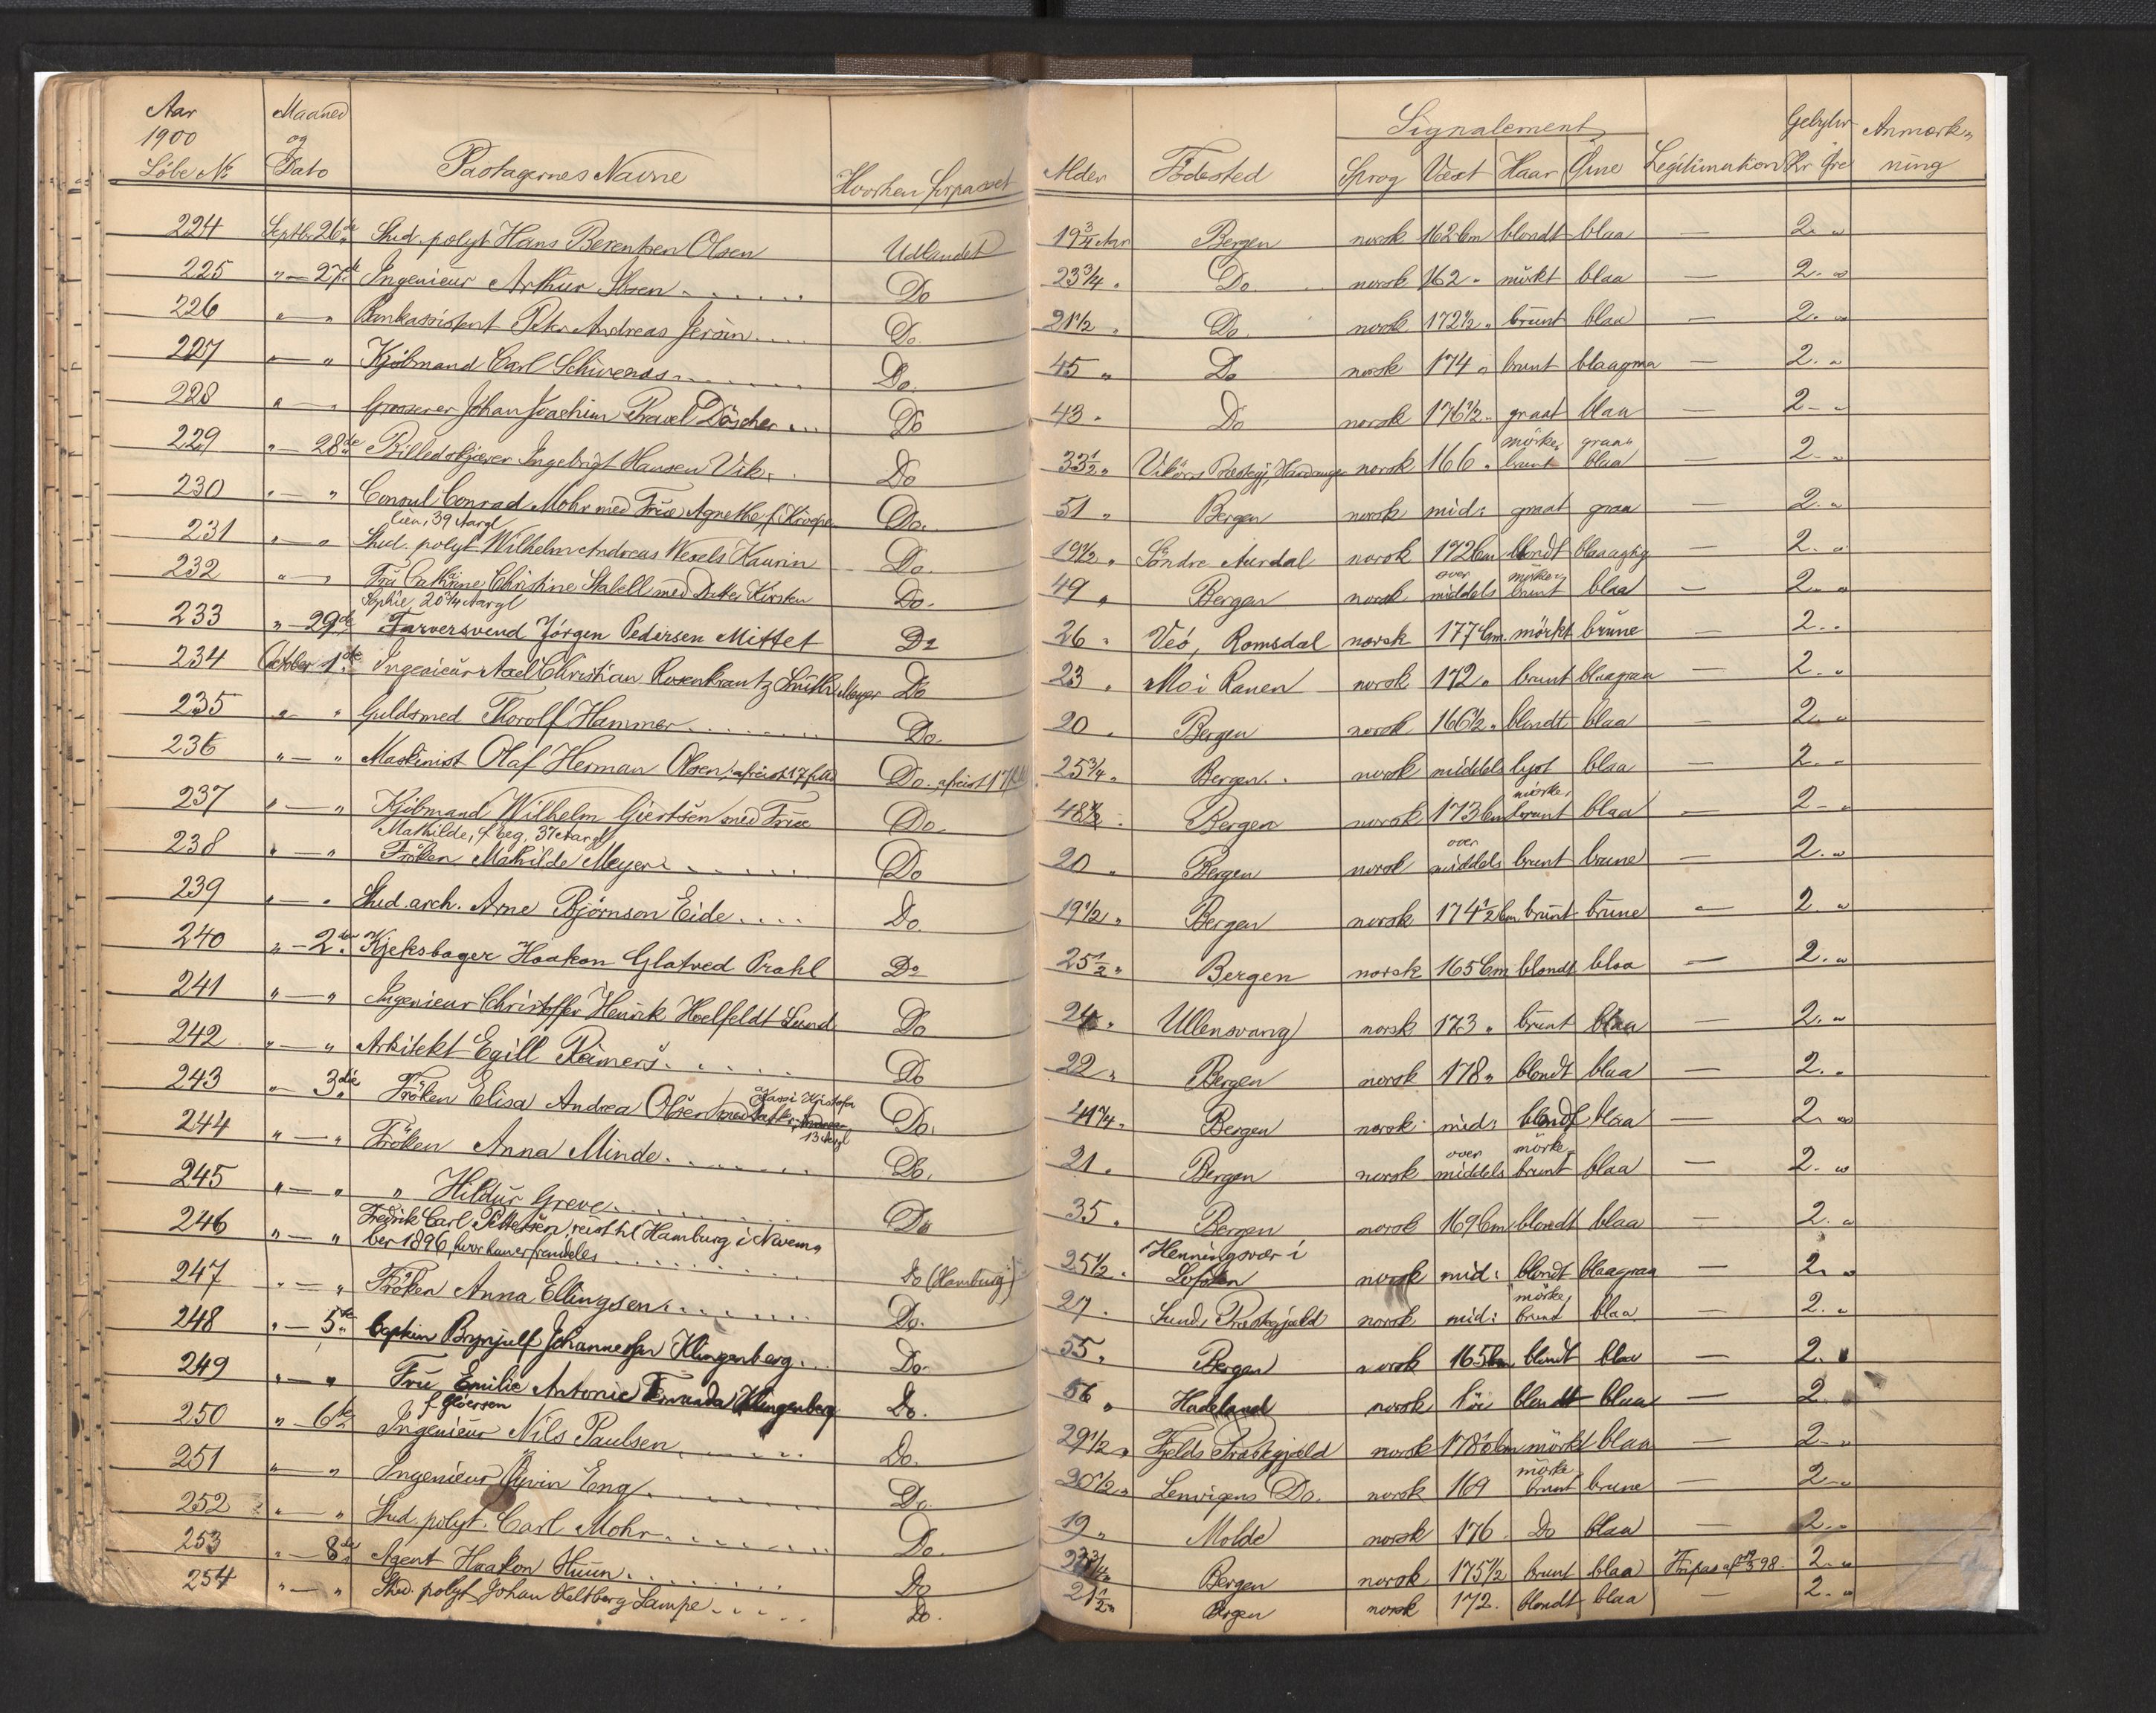 Aar 1900 Löbe No Maaned og Dato Pastagernes Navne Hvorhen forpasset Alder Födested Signalement Sprog Vœxt Haar Öine Legitimation Gebyhr Kr Öre Anmœrkning
224 Septbr 26de Stud. polyt Hans Berentsen Olsen Udlandet 19 3/4 Aar Bergen norsk 162 Cm blondt blaa — 2. "
225 " — 27de Ingenieur Arthur Ibsen Do 23 3/4 " Do norsk 162 " mörkt blaa — 2. "
226 " — " Bankassistent Peter Andreas Jersin Do 21 1/2 " Do norsk 172 1/2 " brunt blaa — 2. "
227 " — " Kjöbmand Carl Schwenas Do. 45 " Do norsk 174 " brunt blaagraa — 2. "
228 " — " Grosserer Johan Joachim Pravel Döscher Do 43 " Do norsk 176 1/2 " graat blaa — 2 - "
229 " — 28de Billedskjærer Ingebrigt Hansen Vik Do 33 1/2 " Vikörs Præstegj, Hardanger norsk 166 " mörke, brunt graa, blaa — 2 - "
230 " — " Consul Conrad Mohr med Frue Agnethe f. Kroepe Do. 51 " Bergen norsk mid: graat graa — 2. "
lien, 39 Aargl
231 " — " Stud. polyt Wilhelm Andreas Wexels Kaurin Do. 19 1/2 " Söndre Aurdal norsk 172 Cm blondt blaaagtig — 2. "
232 " — " Fru Cathrine Christine Stabell med Datter Kirsten Do. 49 " Bergen norsk over middels mörke, brunt blaa — 2. "
Sophie, 20 3/4 Aargl
233 " — 29de Farversvend Jörgen Pedersen Mittet Do 26 " Veö, Romsdal norsk 177 Cm. mörkt brune — 2. "
234 October 1ste Ingenieur Axel Christian Rosenkrantz Smith Meyer Do 23 " Mo i Ranen norsk 172 " brunt blaagraa — 2. "
235 " — " Guldsmed Thorolf Hammer Do. 20 " Bergen norsk 166 1/2 " blondt blaa — 2. "
236 " — " Maskinist Olaf Herman Olsen, afreist 17 Do. afreist 17 25 3/4 " Bergen norsk middels lyst blaa — 2. "
237 " — " Kjöbmand Wilhelm Giertsen med Frue Do. 48 1/2 " Bergen norsk 173 Cm mörke, brunt blaa — 2 - "
Mathilde, f. Beg, 37 Aargl
238 " — " Fröken Mathilde Meyer Do 20 " Bergen norsk over middels brunt brune — 2. "
239 " — " Stud. arch. Arne Björnson Eide Do 19 1/2 " Bergen norsk 174 1/2 Cm brunt brune — 2. "
240 " — 2den Kjeksbager Haakon Glatved Prahl Do 25 1/2 " Bergen norsk 165 Cm blondt blaa — 2. "
241 " — " Ingenieur Christoffer Henrik Hoelfeldt Lund Do 24 " Ullensvang norsk 173 " brunt blaa — 2. "
242 " — " Arkitekt Egill Reimers Do 22 " Bergen norsk 178 " blondt blaa — 2. "
243 " — 3die Fröken Elisa Andrea Olsen med Datter 13 Aargl Do. 41 3/4 " Bergen norsk mid: blondt blaa — 2. "
244 " — " Fröken Anna Minde Do. 21 " Bergen norsk over middels mörke, brunt blaa — 2. "
245 " — " " Hildur Greve Do 35 " Bergen norsk 169 Cm blondt blaa — 2. "
246 " — " Fredrik Carl Pettersen, reist til Hamburg i Novem,
ber 1896, hvor han er fremdeles Do (Hamburg) 25 1/2 " Henningsvær i Lofoten norsk mid: blondt blaagraa — 2. "
247 " — " Fröken Anna Ellingsen Do. 27 " Sunds Præstegjæld norsk mid: mörke, brunt blaa. — 2. "
248 " — 5te Captein Brynjulf Johannessen Klingenberg Do. 55 " Bergen norsk 165 Cm blondt blaa — 2. "
249 " — " Fru Emilie Antonie Fernanda Klingenberg Do. 56 " Hadeland norsk blondt blaa — 2.
f. Gjörsen
250 " — 6te Ingenieur Nils Paulsen Do. 29 1/2 " Fjelds Præstegjæld norsk 178 Cm mörkt blaa — 2 - "
251 " — " Ingenieur Öyvin Eng Do. 20 1/2 " Lenvigens Do. norsk 169 mörke, brunt brune — 2 - "
252 " — " Stud. polyt. Carl Mohr Do. 19 " Molde norsk 176 Do blaa — 2. "
253 " — 8de Agent Haakon Huun Do 3/4 Bergen norsk 175 1/2 brunt blaa Fripas af 98. 2. "
254 " — " Stud. polyt Johan Heltberg Lampe Do. 21 1/2 " Bergen norsk 172. blondt blaa — 2. "